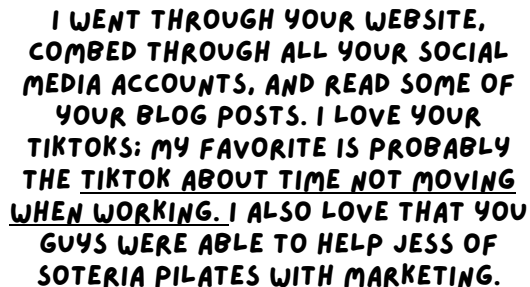 I WENT THROUGH YOUR WEBSITE,
COMBED THROUGH ALL YOUR SOCIAL
MEDIA ACCOUNTS, AND READ SOME OF
YOUR BLOG POSTS. I LOVE YOUR
TIKTOKS; MY FAVORITE IS PROBABLY
THE TIKTOK ABOUT TIME NOT MOVING
WHEN WORKING. I ALSO LOVE THAT YOU
GUYS WERE ABLE TO HELP JESS OF
SOTERIA PILATES WITH MARKETING.